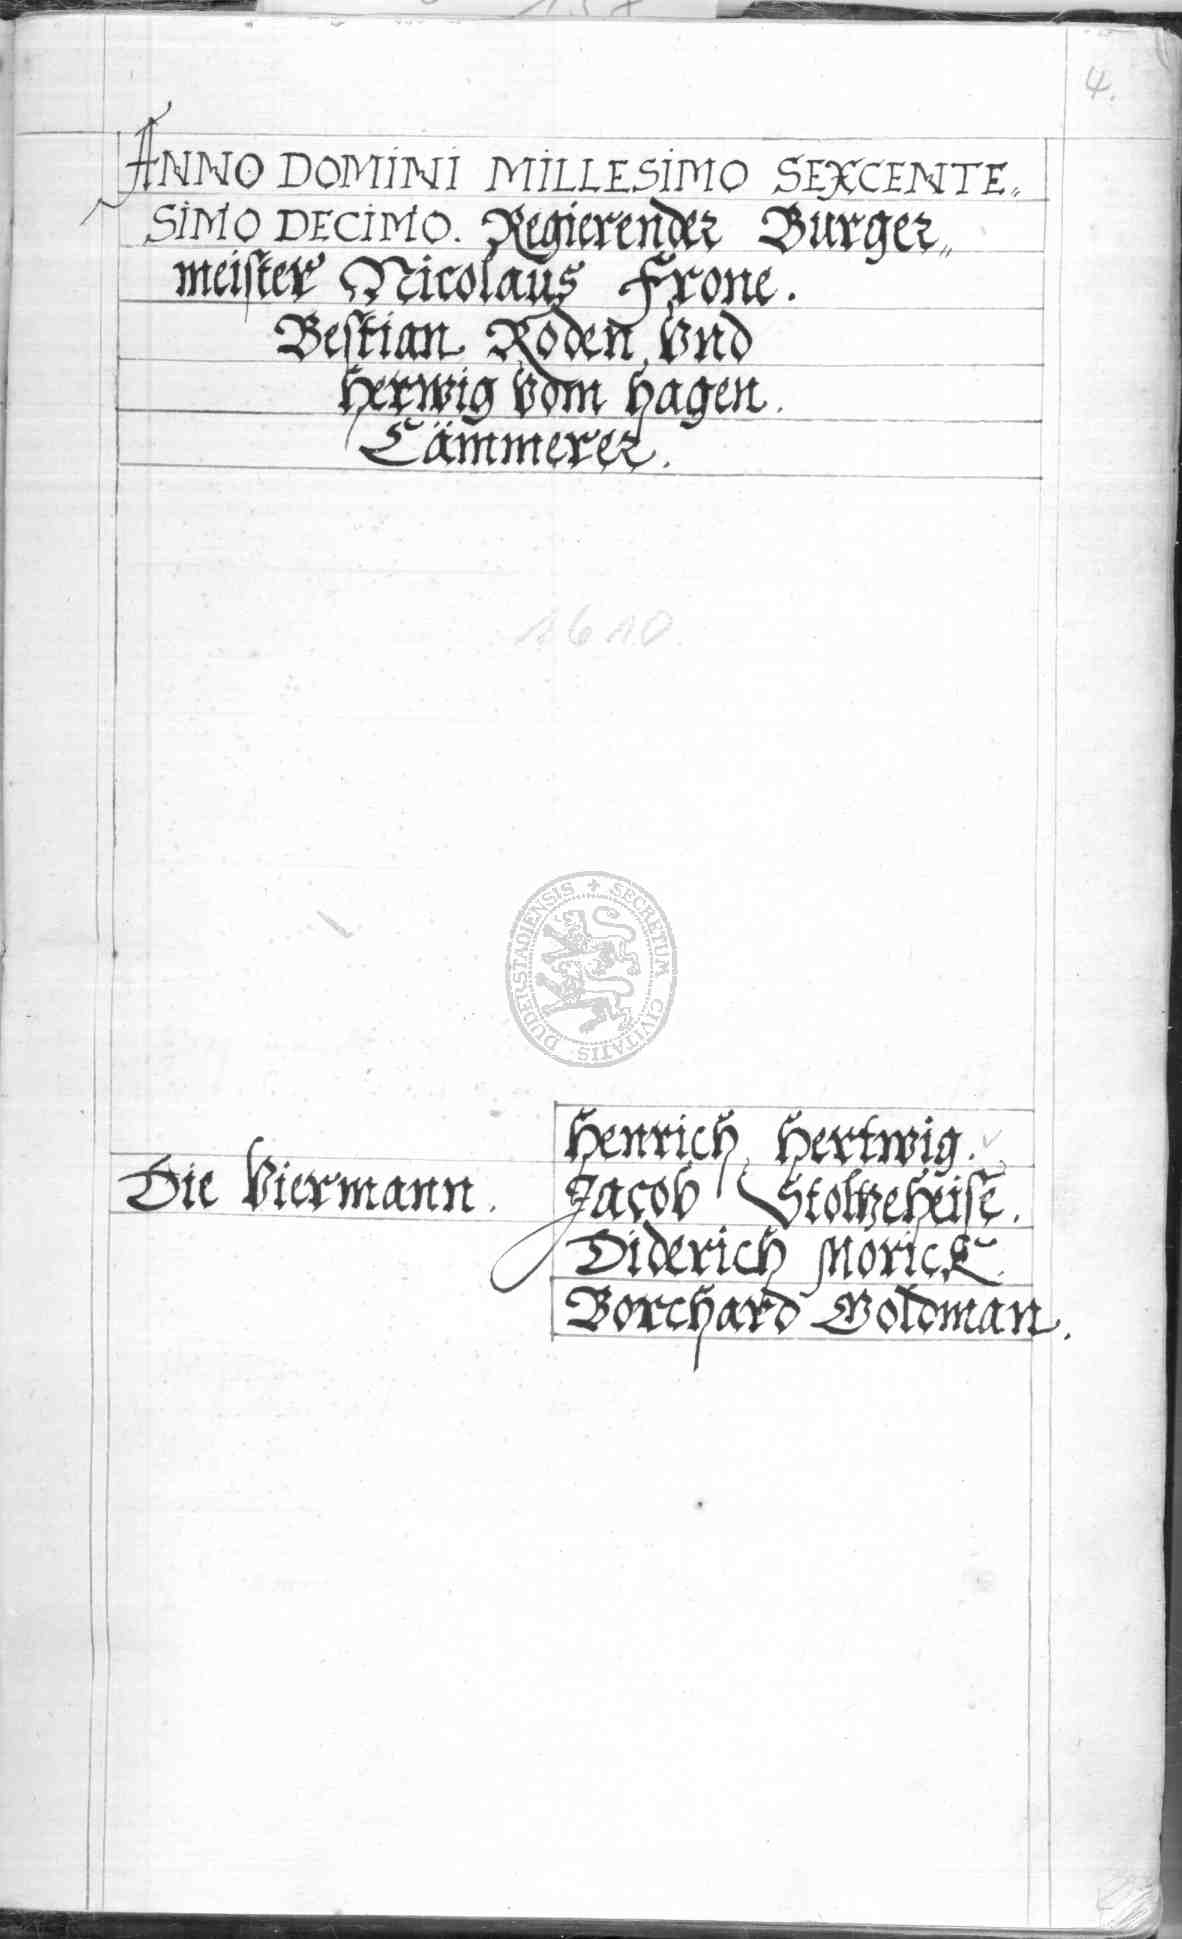 4.
ANNO DOMINI MILLESIMO SEXCENTE„
SIMO DECIMO. Regierender Burger„
meister Nicolaus Frone.
Bestian Roden Vnd
Herwig Vom Hagen.
Cämmerer.
1610.
SECRETUM CIVITATIS DUDERSTADIENSIS
Henrich Hertwig.
Die Viermann.
Jacob Stoltzeheise.
Diderich Morick.
Borchard Goldman.